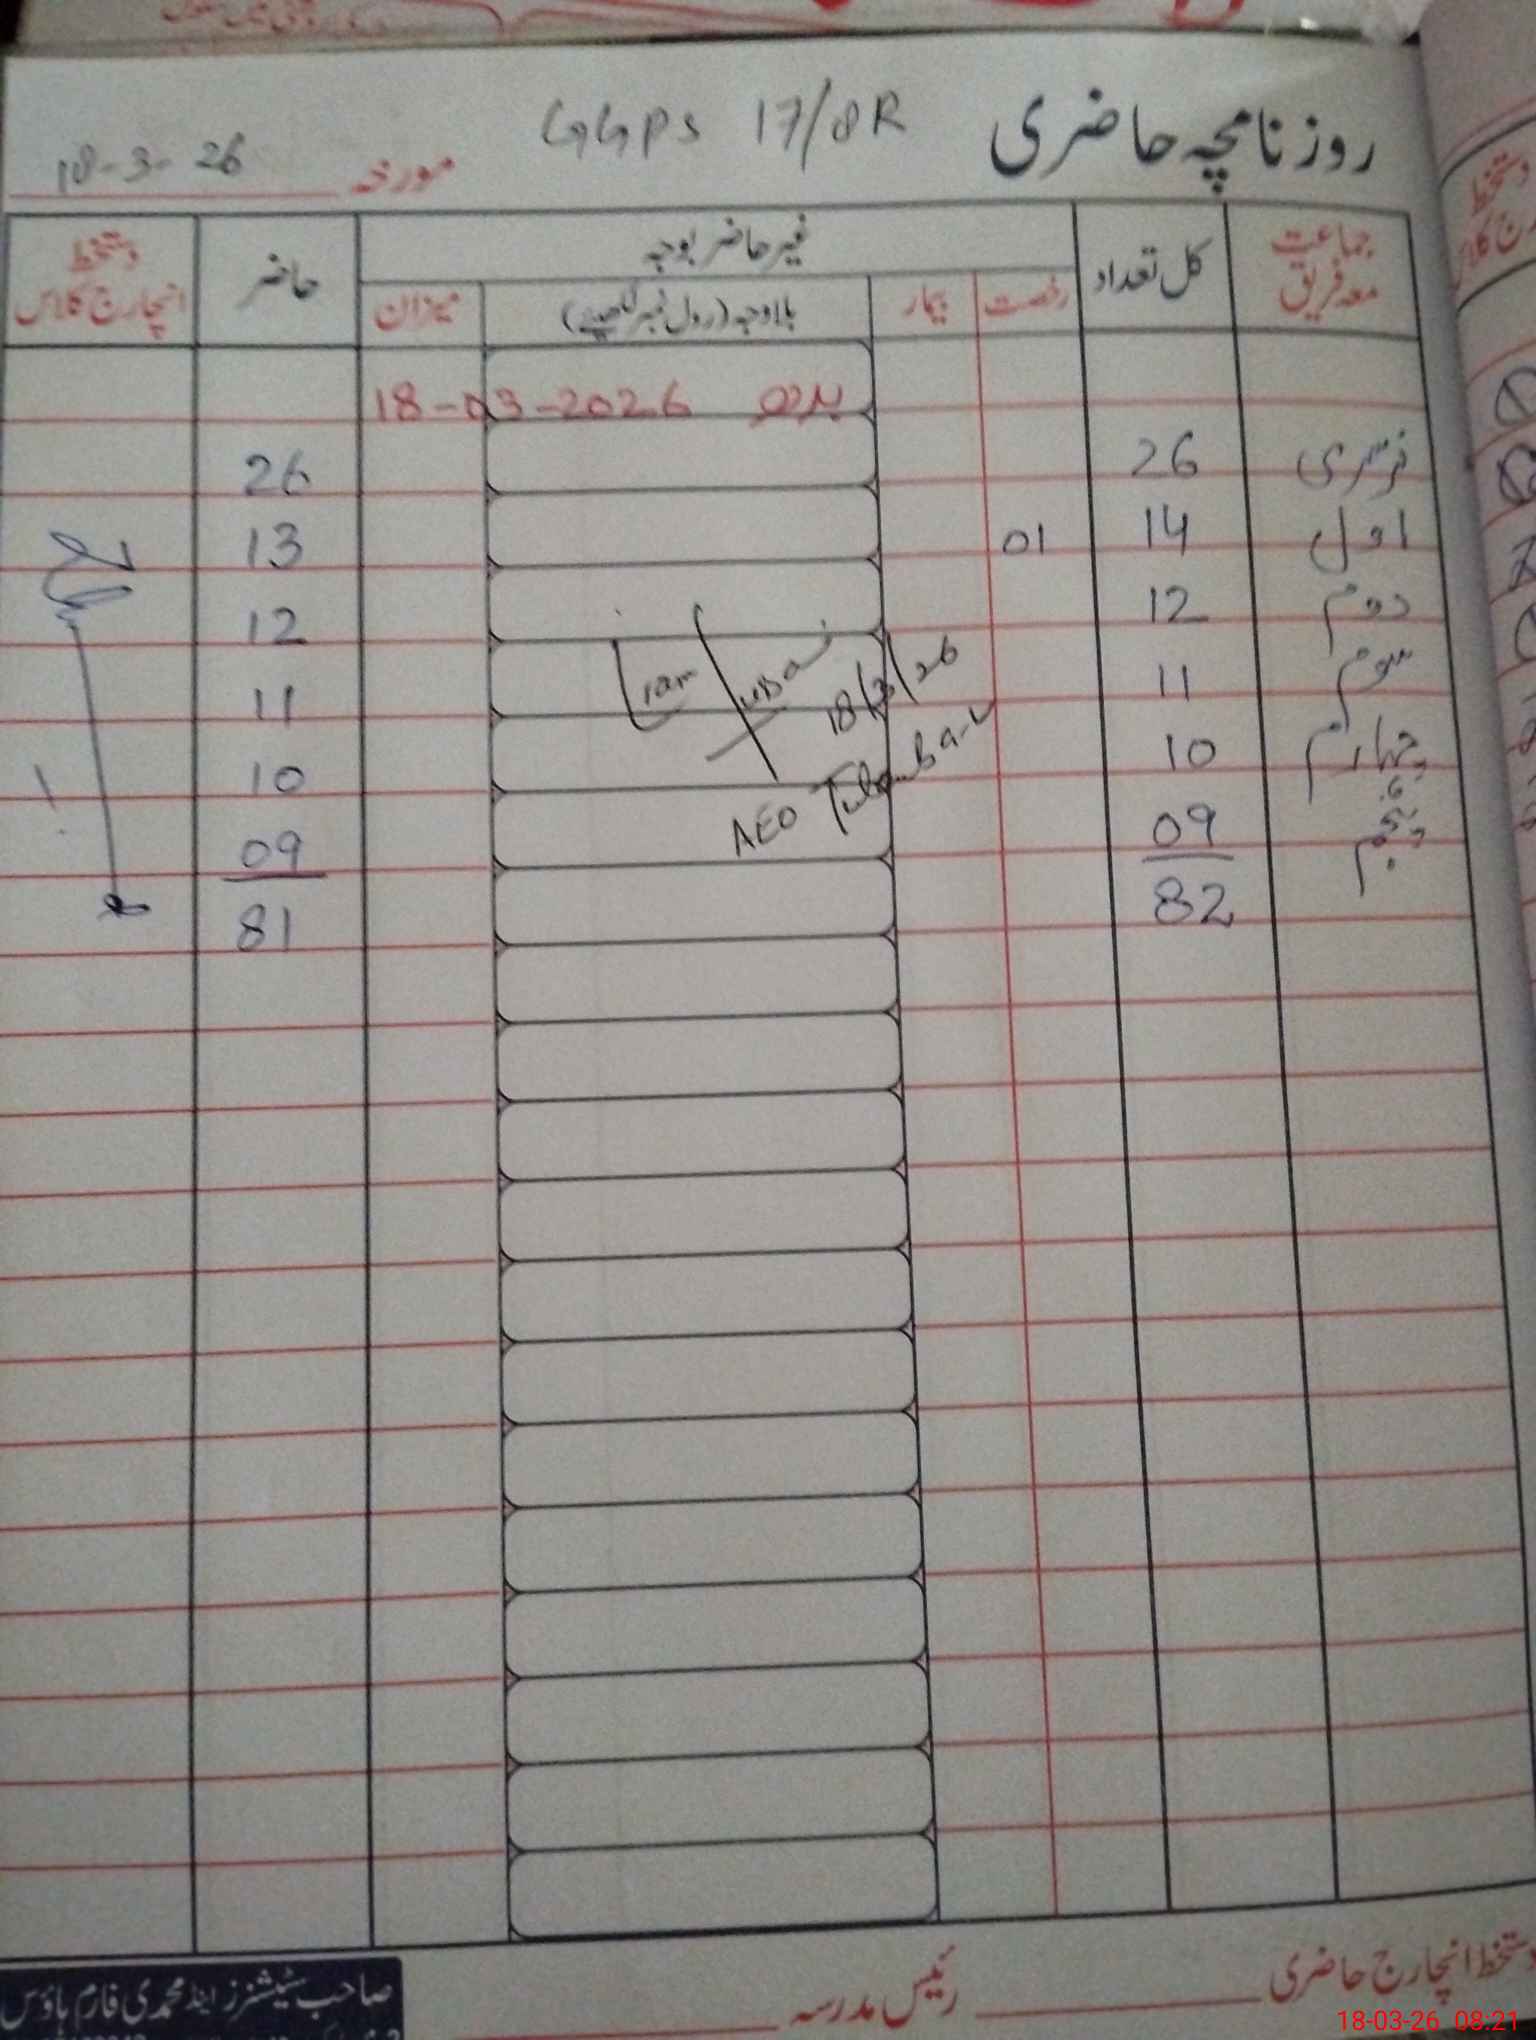 روزنامچہ حاضری GGPS 17/8R
مورخہ 18-3-26
جماعت معہ فریق کل تعداد غیر حاضر بوجہ حاضر دستخط انچارج کلاس
رخصت بیمار بلاوجہ (رول نمبر لکھیئے) میزان
بدھ 18-03-2026
نرسری 26 26
اول 14 01 13
دوم 12 12
سوم 11 11
18/3/26
چہارم 10 10
AEO
پنجم 09 09
82 81
دستخط انچارج حاضری رئیس مدرسہ
صاحب سٹیشنرز اینڈ محمدی فارم ہاؤس
18-03-26 08:21